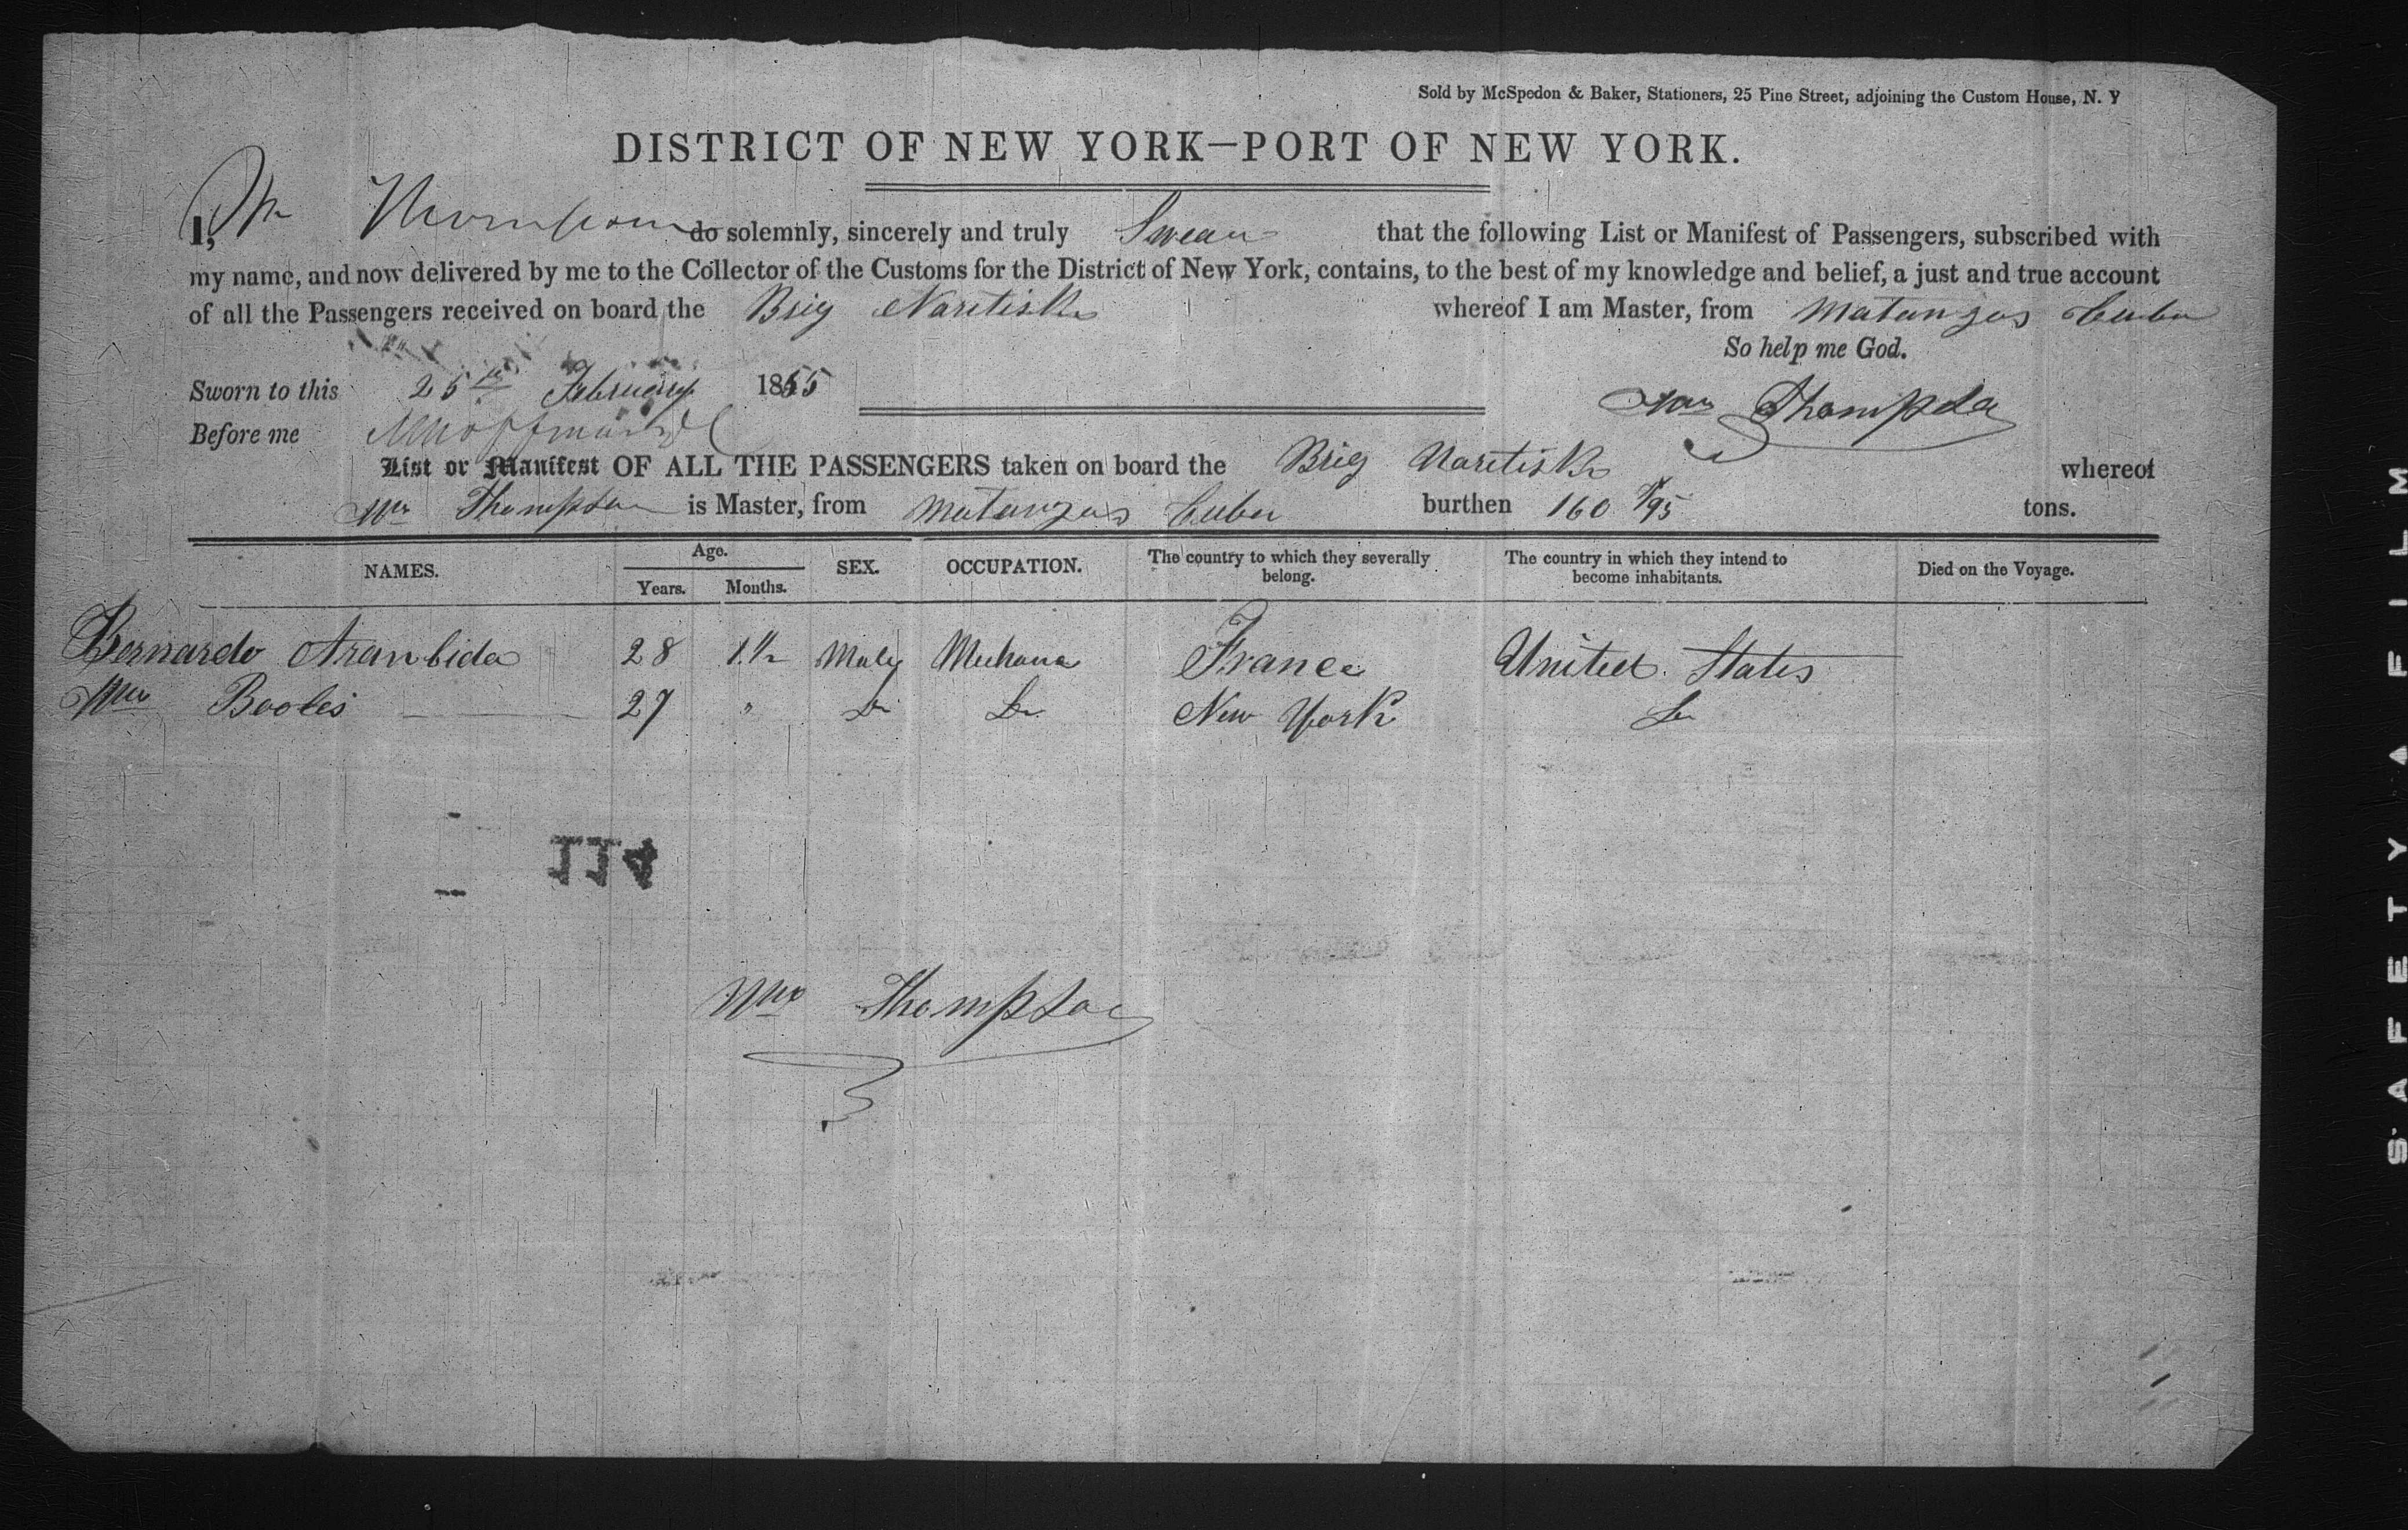 Sold by McSpedon & Baker, Stationers, 25 Pine Street, adjoining the Custom House, N. Y
DISTRICT OF NEW YORK—PORT OF NEW YORK.
I, Wm Thompson do solemnly, sincerely and truly Swear that the following List or Manifest of Passengers, subscribed with
my name, and now delivered by me to the Collector of the Customs for the District of New York, contains, to the best of my knowledge and belief, a just and true account
of all the Passengers received on board the Brig whereof I am Master, from Matanzas Cuba
So help me God.
Sworn to this 25th February 1855
Wm Thompson
Before me
List or Manifest OF ALL THE PASSENGERS taken on board the Brig whereof
Wm Thompson is Master, from Matanzas Cuba burthen 160 tons.
NAMES. Age. Years. Months. SEX. OCCUPATION. The country to which they severally belong. The country in which they intend to become inhabitants. Died on the Voyage.
Bernardo 28 Male France United States
Wm 27 " Do Do New York Do
Wm Thompson
SAFETY FILM